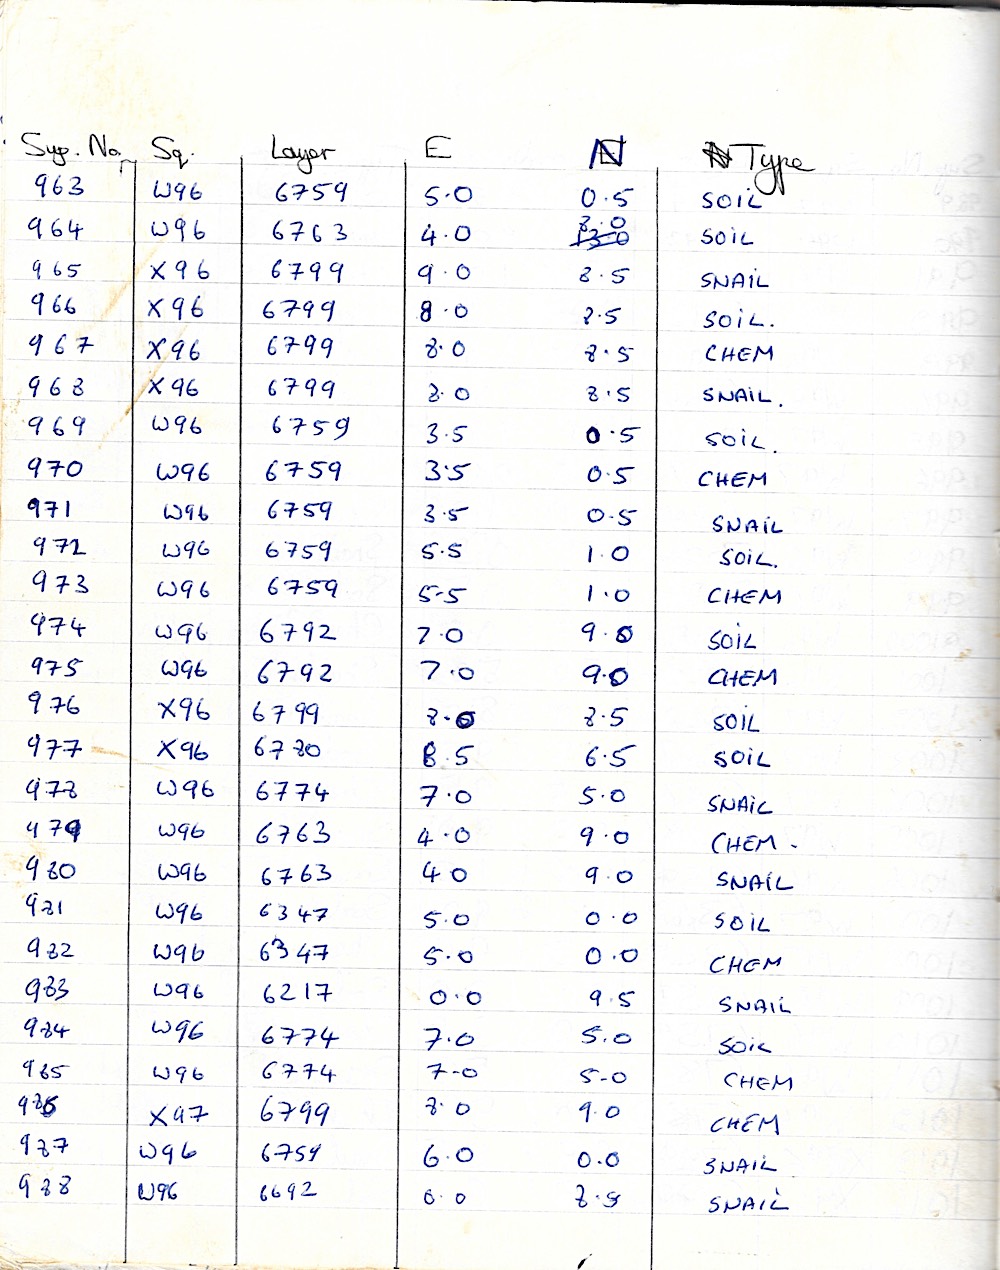 Syp. No. Sq. Layer E N Type
963 W96 6759 5.0 0.5 SOIL
964 W96 6763 4.0 8.0 SOIL
965 X96 6799 9.0 8.5 SNAIL
966 X96 6799 8.0 8.5 SOIL.
967 X96 6799 8.0 8.5 CHEM
968 X96 6799 8.0 8.5 SNAIL.
969 W96 6759 3.5 0.5 SOIL.
970 W96 6759 3.5 0.5 CHEM
971 W96 6759 3.5 0.5 SNAIL
972 W96 6759 5.5 1.0 SOIL.
973 W96 6759 5.5 1.0 CHEM
974 W96 6792 7.0 9.0 SOIL
975 W96 6792 7.0 9.0 CHEM
976 X96 6799 8.0 8.5 SOIL
977 X96 6780 8.5 6.5 SOIL
978 W96 6774 7.0 5.0 SNAIL
979 W96 6763 4.0 9.0 CHEM.
980 W96 6763 4.0 9.0 SNAIL
981 W96 6347 5.0 0.0 SOIL
982 W96 6347 5.0 0.0 CHEM
983 W96 6217 0.0 9.5 SNAIL
984 W96 6774 7.0 5.0 SOIL
985 W96 6774 7.0 5.0 CHEM
986 X97 6799 8.0 9.0 CHEM
987 W96 6759 6.0 0.0 SNAIL
988 W96 6692 0.0 8.5 SNAIL